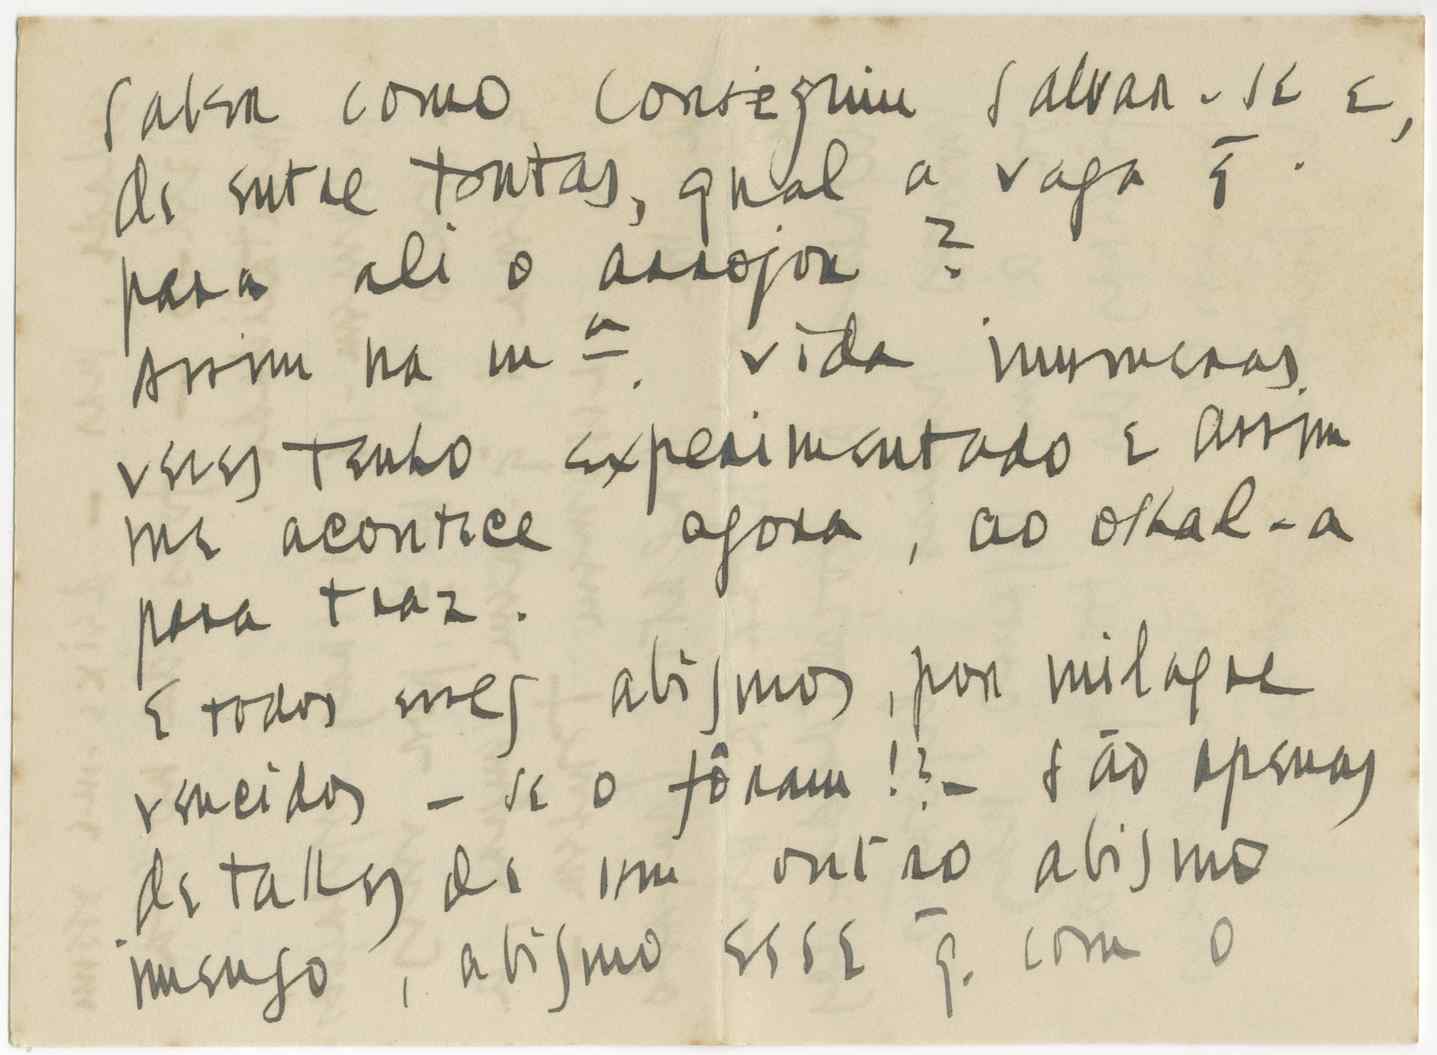 saber como conseguiu salvar-se e,
de entre tontas, qual a vaga q̄.
para ali o arrojou?
Assim na mª. vida inumeras
vezes tenho experimentado e assim
me acontece agora, ao olhal-a
para traz.
E todos esses abismos, por milagre
vencidos – se o fôram!?– são apenas
detalhes de um outro abismo
imenso, abismo esse q̄. com o